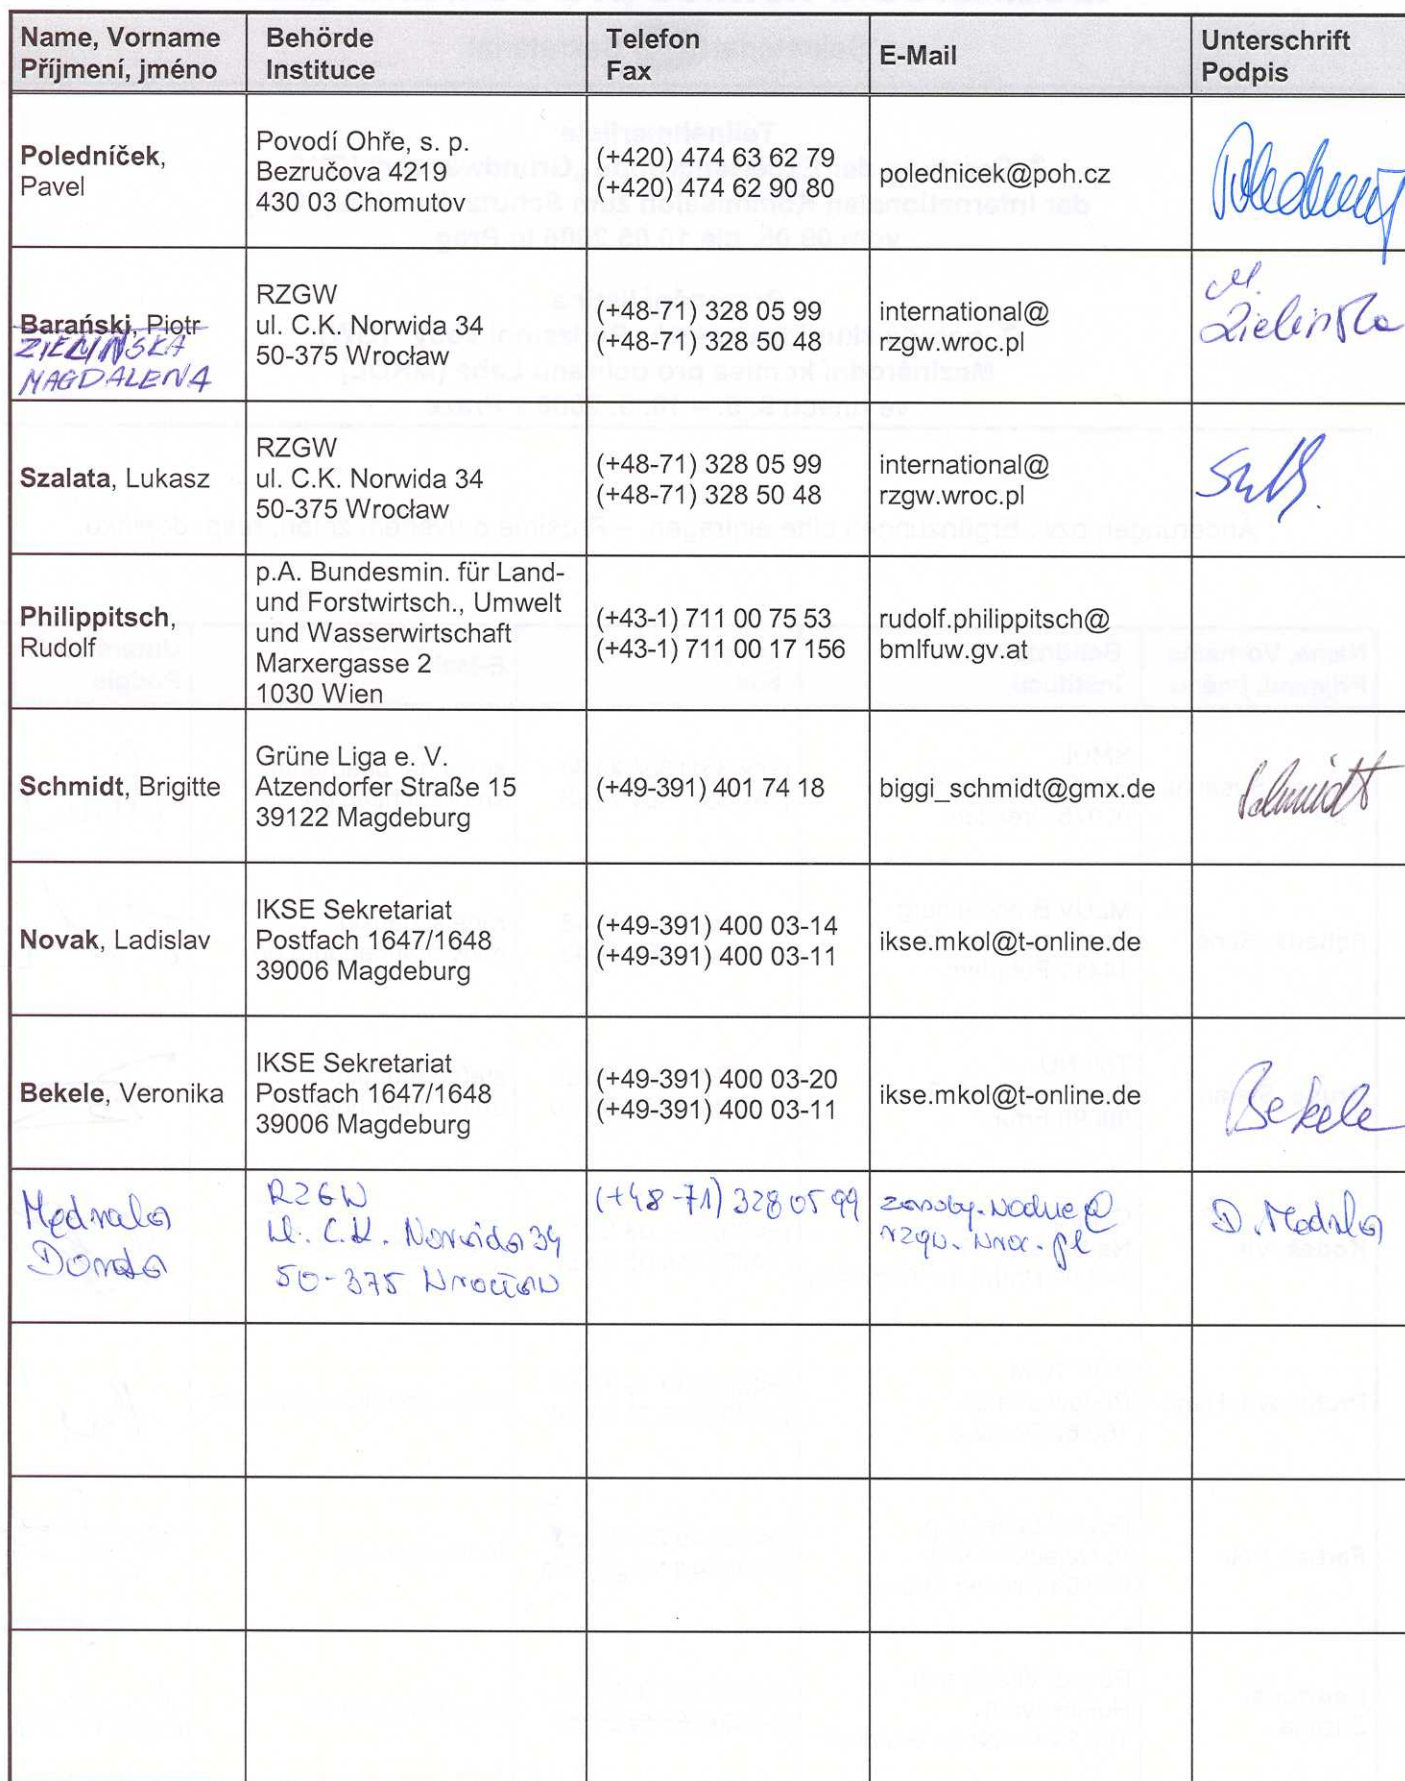 Name, Vorname
Příjmení, jméno
Behörde
Instituce
Telefon
Fax
E-Mail
Unterschrift
Podpis
Poledníček,
Pavel
Povodí Ohře, s. p.
Bezručova 4219
430 03 Chomutov
(+420) 474 63 62 79
(+420) 474 62 90 80
polednicek@poh.cz
Barański, Piotr
ZIELIŃSKA
MAGDALENA
RZGW
ul. C.K. Norwida 34
50-375 Wrocław
(+48-71) 328 05 99
(+48-71) 328 50 48
international@
rzgw.wroc.pl
M.
Zielińska
Szalata, Lukasz
RZGW
ul. C.K. Norwida 34
50-375 Wrocław
(+48-71) 328 05 99
(+48-71) 328 50 48
international@
rzgw.wroc.pl
Philippitsch,
Rudolf
p.A. Bundesmin. für Land-
und Forstwirtsch., Umwelt
und Wasserwirtschaft
Marxergasse 2
1030 Wien
(+43-1) 711 00 75 53
(+43-1) 711 00 17 156
rudolf.philippitsch@
bmlfuw.gv.at
Schmidt, Brigitte
Grüne Liga e. V.
Atzendorfer Straße 15
39122 Magdeburg
(+49-391) 401 74 18
biggi_schmidt@gmx.de
Schmidt
Novak, Ladislav
IKSE Sekretariat
Postfach 1647/1648
39006 Magdeburg
(+49-391) 400 03-14
(+49-391) 400 03-11
ikse.mkol@t-online.de
Bekele, Veronika
IKSE Sekretariat
Postfach 1647/1648
39006 Magdeburg
(+49-391) 400 03-20
(+49-391) 400 03-11
ikse.mkol@t-online.de
Bekele
RZGW
ul. C.K. Norwida 34
50-375 Wrocław
(+48-71) 328 05 99
zasoby.wodne@
rzgw.wroc.pl
D.